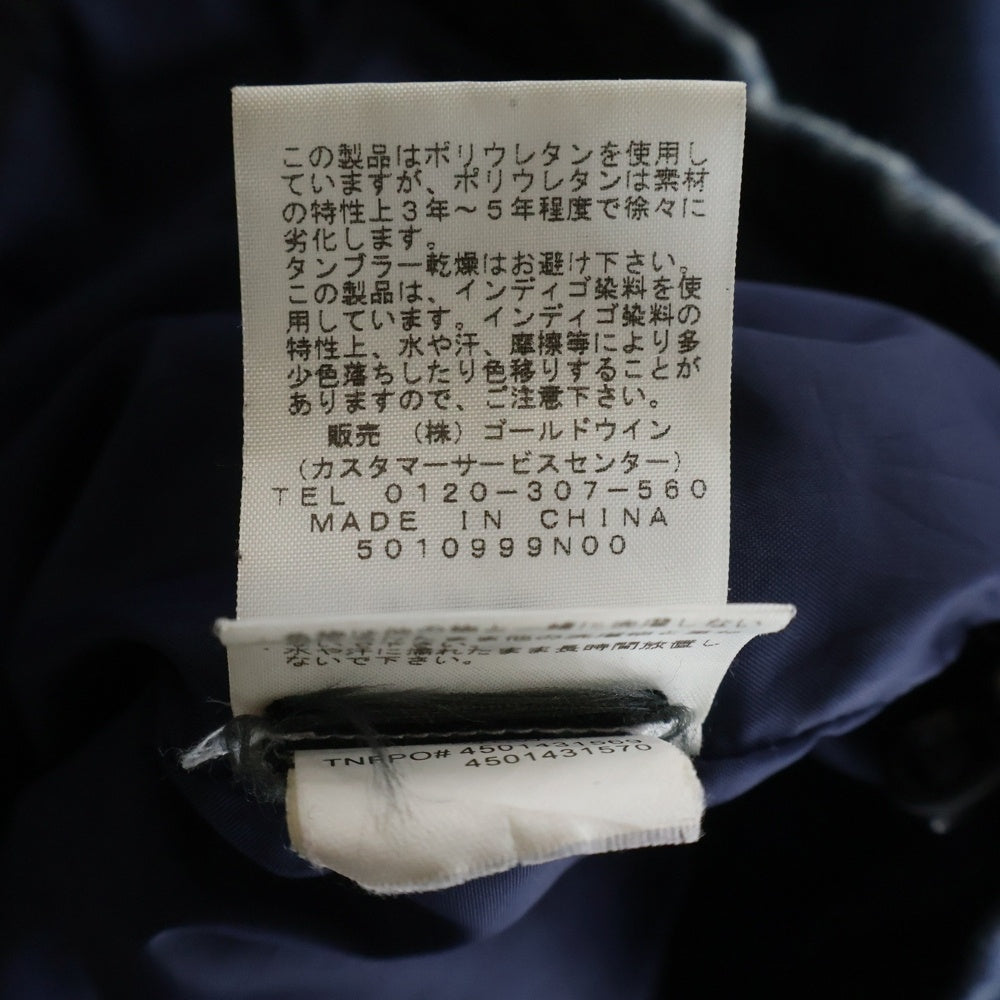 この製品はポリウレタンを使用し
ていますが、ポリウレタンは素材
の特性上3年~5年程度で徐々に
劣化します。
タンブラー乾燥はお避け下さい。
この製品は、インディゴ染料を使
用しています。インディゴ染料の
特性上、水や汗、摩擦等により多
少色落ちしたり色移りすることが
ありますので、ご注意下さい。
販売 (株)ゴールドウイン
(カスタマーサービスセンター)
TEL 0120-307-560
MADE IN CHINA
5010999N00
水や汗に濡れたまま長時間放置し
ないで下さい。
4501431570